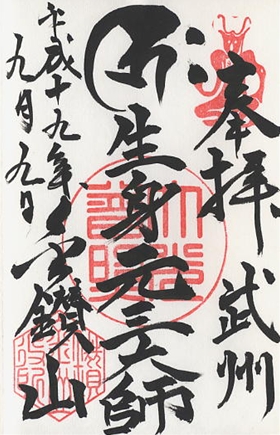 奉拝 武州
生身元三大師
金鑚山
平成十九年
九月九日